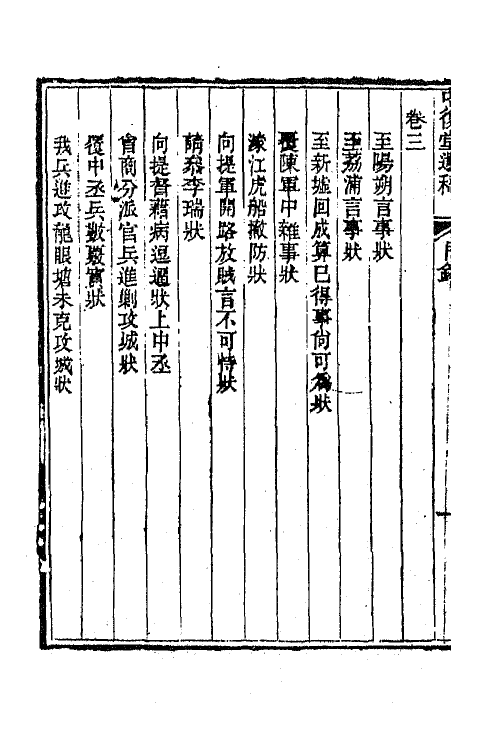 中復堂遺稿 目錄
卷三
至陽朔言事狀
至荔浦言事狀
至新墟回成算已得事尙可爲狀
覆陳軍中雜事狀
濛江虎船撤防狀
向提軍開路放賊言不可恃狀
請飛李瑞狀
向提督藉病逗遛狀上中丞
會商分派官兵進剿攻城狀
覆中丞兵數覈實狀
我兵進攻龍眼塘未克攻城狀